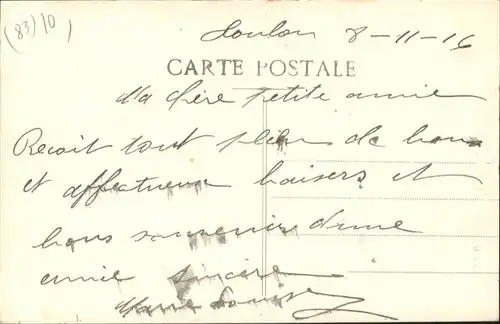 (83) 10
Toulon 8-11-16
CARTE POSTALE
Ma chère petite amie
Recoit tout plein de bons
et affectueux baisers et
bons souvenirs d'une
amie sincère
Marie Louise